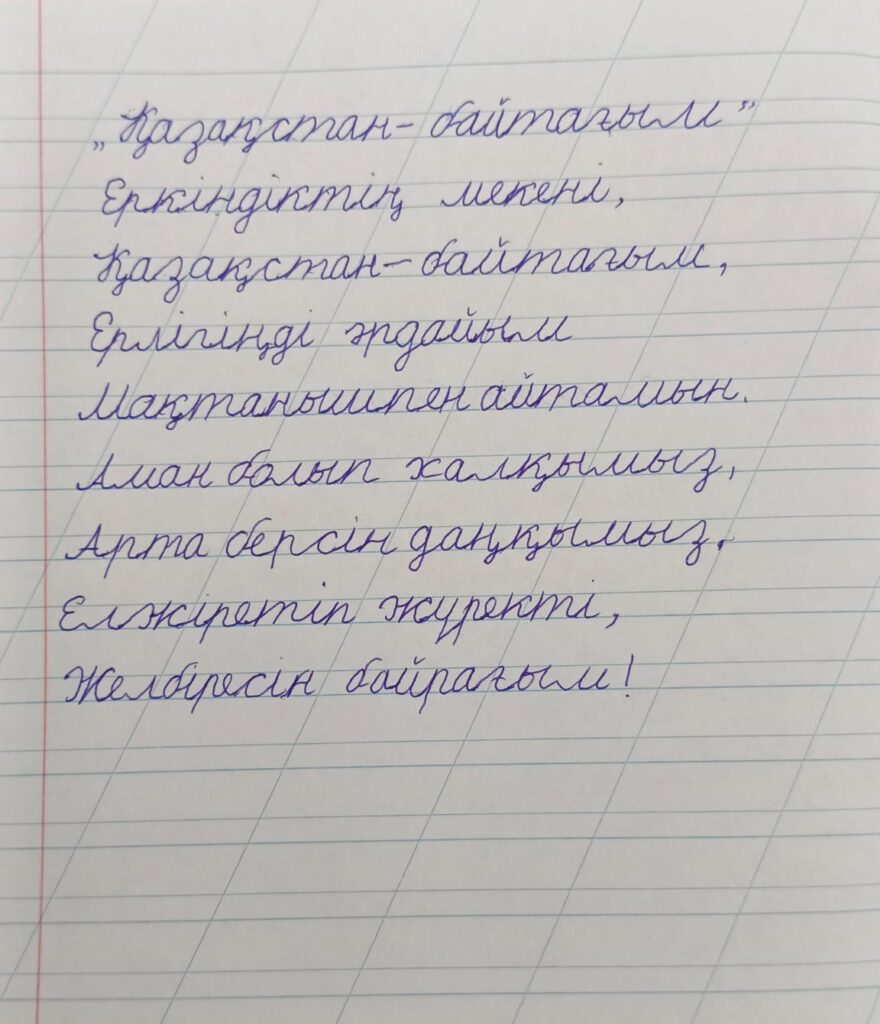 „Қазақстан-байтағым”
Еркіндіктің мекені,
Қазақстан-байтағым,
Ерлігіңді әрдайым
Мақтанышпен айтамын.
Аман болып халқымыз,
Арта берсін даңқымыз.
Елжіретіп жүректі,
Желбіресін байрағым!